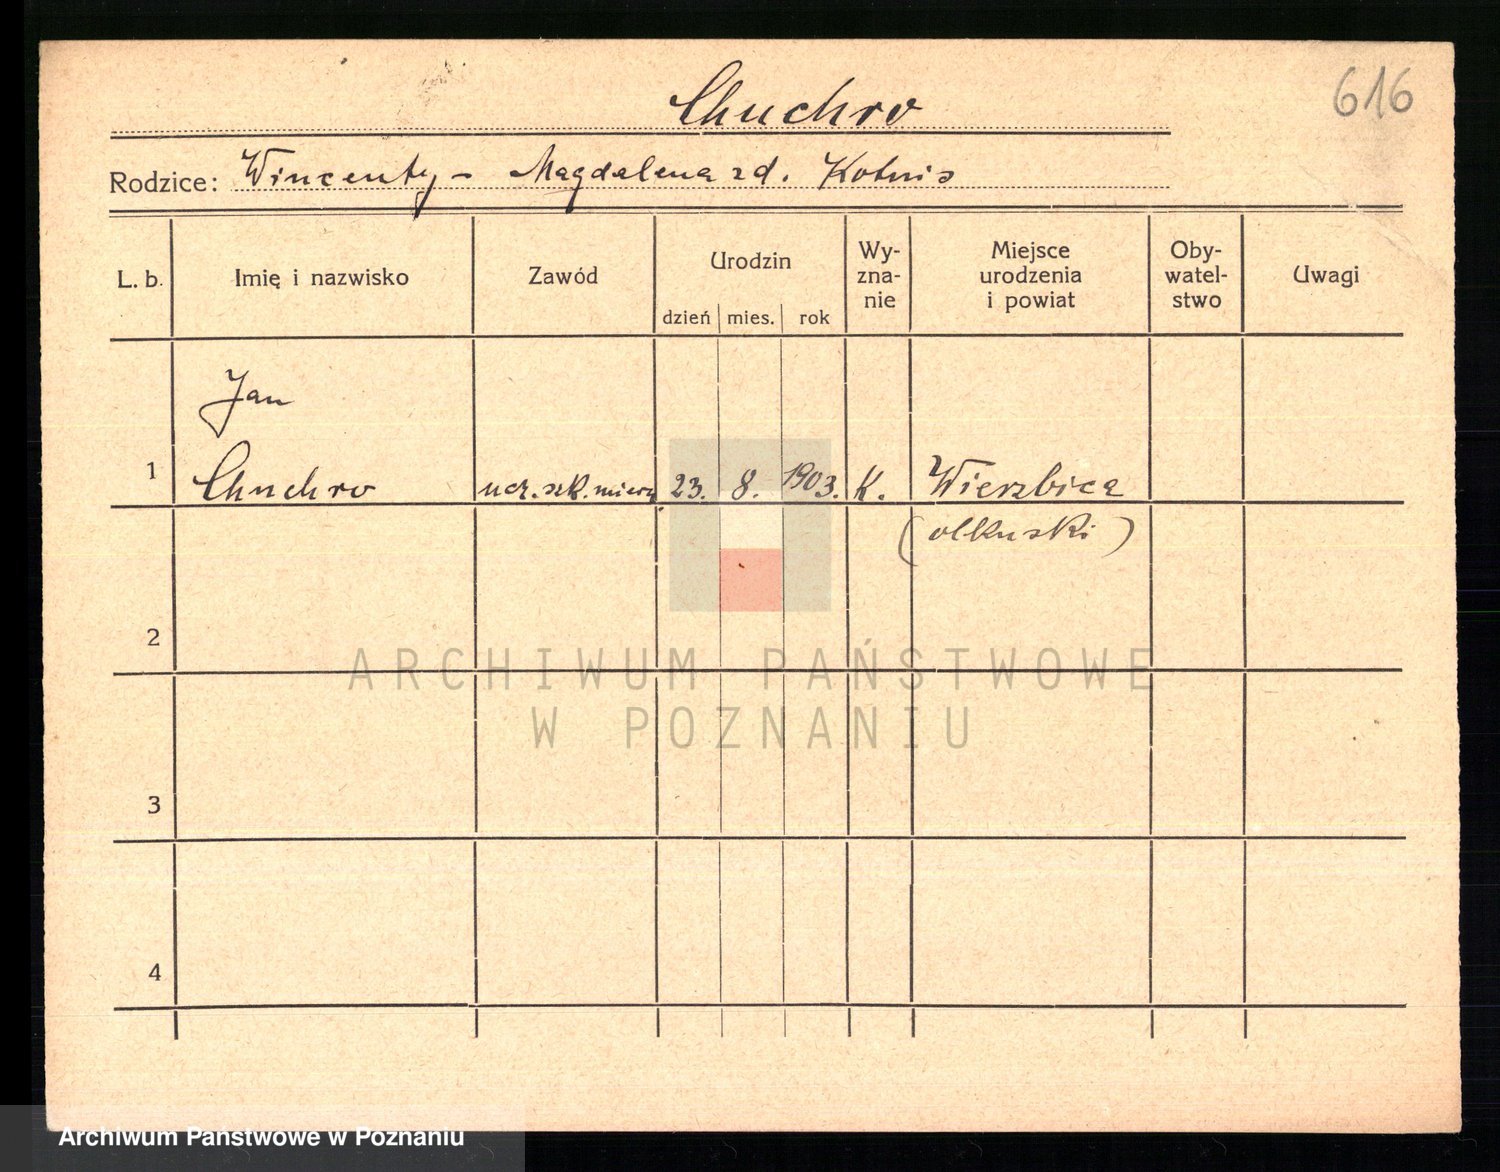 616
Chuchro
Rodzice: Wincenty - Magdalena zd. Kotnis
L. b. Imię i nazwisko Zawód Urodzin Wy- zna- nie Miejsce urodzenia i powiat Oby- watel- stwo Uwagi
dzień mies. rok
Jan
1 Chuchro ucz. szk. miern. 23. 8. 1903. K. Wierzbica
(olkuski)
2
ARCHIWUM PAŃSTWOWE
W POZNANIU
3
4
Archiwum Państwowe w Poznaniu